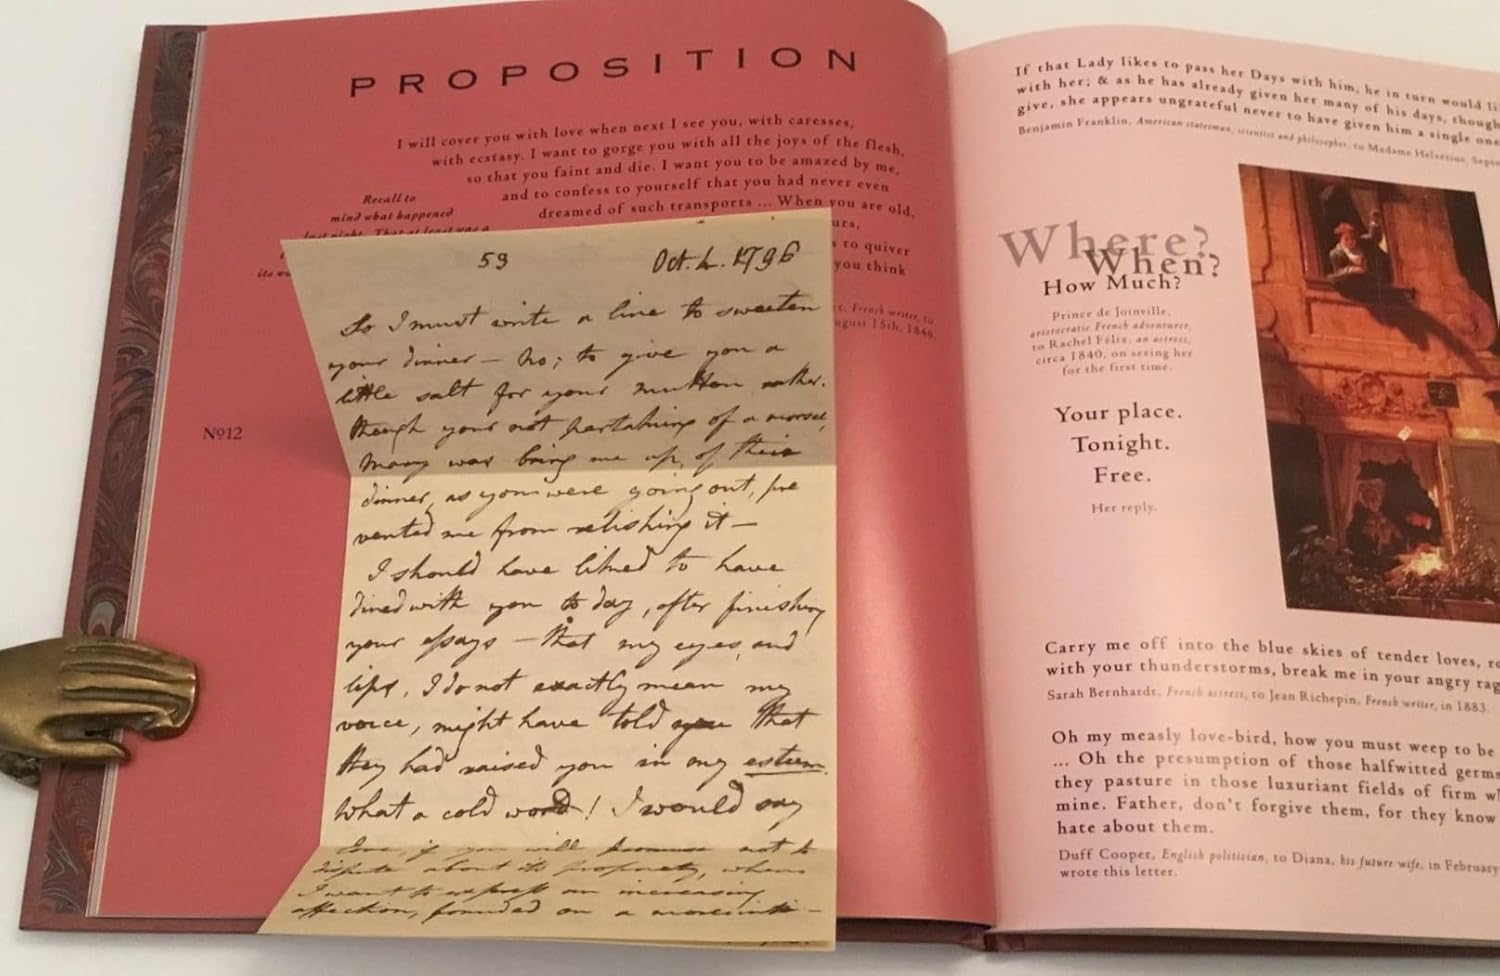 PROPOSITION
I will cover you with love when next I see you, with caresses,
with ecstasy. I want to gorge you with all the joys of the flesh,
so that you faint and die. I want you to be amazed by me,
and to confess to yourself that you had never even
dreamed of such transports ... When you are old,
Recall to
mind what happened
last night. That at least was a
to quiver
you think
French writer, to
August 15th, 1846.
No12
53
Oct. 4. 1796
So I must write a line to sweeten
your dinner — No; to give you a
little salt for your mutton rather.
though your not partaking of a morsel,
Mary was bring me up, of their
dinner, as you were going out, pre
vented me from relishing it —
I should have liked to have
dined with you to day, after finishing
your essays — that my eyes, and
lips, I do not exactly mean my
voice, might have told you that
they had raised you in my esteem.
What a cold word! I would say
love, if you will promise not to
dispute about its propriety, when
I want to express an increasing
affection, founded on a more inti-
If that Lady likes to pass her Days with him, he in turn would
with her; & as he has already given her many of his days, though
give, she appears ungrateful never to have given him a single one
Benjamin Franklin, American statesman, scientist and philosopher, to Madame Helvetius,
Where?
When?
How Much?
Prince de Joinville,
aristocratic French adventurer,
to Rachel Félix, an actress,
circa 1840, on seeing her
for the first time.
Your place.
Tonight.
Free.
Her reply.
Carry me off into the blue skies of tender loves,
with your thunderstorms, break me in your angry
Sarah Bernhardt, French actress, to Jean Richepin, French writer, in 1883.
Oh my measly love-bird, how you must weep to be
... Oh the presumption of those halfwitted germs
they pasture in those luxuriant fields of firm
mine. Father, don't forgive them, for they know
hate about them.
Duff Cooper, English politician, to Diana, his future wife, in February
wrote this letter.